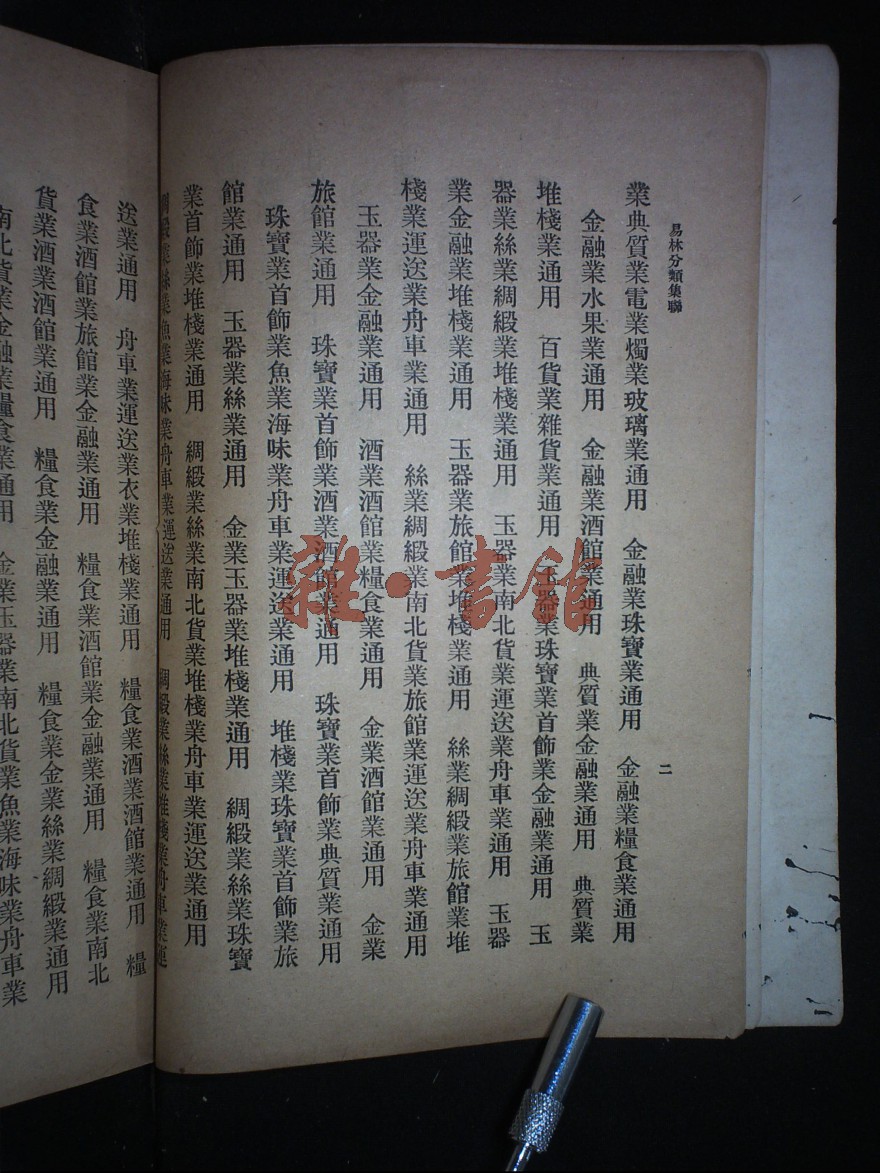 易林分類集聯
二
業典質業電業燭業玻璃業通用　金融業珠寶業通用　金融業糧食業通用
金融業水果業通用　金融業酒館業通用　典質業金融業通用　典質業
堆棧業通用　百貨業雜貨業通用　玉器業珠寶業首飾業金融業通用　玉
器業絲業綢緞業堆棧業通用　玉器業南北貨業運送業舟車業通用　玉器
業金融業堆棧業通用　玉器業旅館業堆棧業通用　絲業綢緞業旅館業堆
棧業運送業舟車業通用　絲業綢緞業南北貨業旅館業運送業舟車業通用
玉器業金融業通用　酒業酒館業糧食業通用　金業酒館業通用　金業
旅館業通用　珠寶業首飾業酒業酒館業通用　珠寶業首飾業典質業通用
珠寶業首飾業魚業海味業舟車業運送業通用　堆棧業珠寶業首飾業旅
館業通用　玉器業絲業通用　金業玉器業堆棧業通用　綢緞業絲業珠寶
業首飾業堆棧業通用　綢緞業絲業南北貨業堆棧業舟車業運送業通用
綢緞業絲業魚業海味業舟車業運送業通用　綢緞業絲業堆棧業舟車業運
送業通用　舟車業運送業衣業堆棧業通用　糧食業酒業酒館業通用　糧
食業酒館業旅館業金融業通用　糧食業酒館業金融業通用　糧食業南北
貨業酒業酒館業通用　糧食業金融業通用　糧食業金業絲業綢緞業通用
南北貨業金融業糧食業通用　金業玉器業南北貨業魚業海味業舟車業
雜·書館